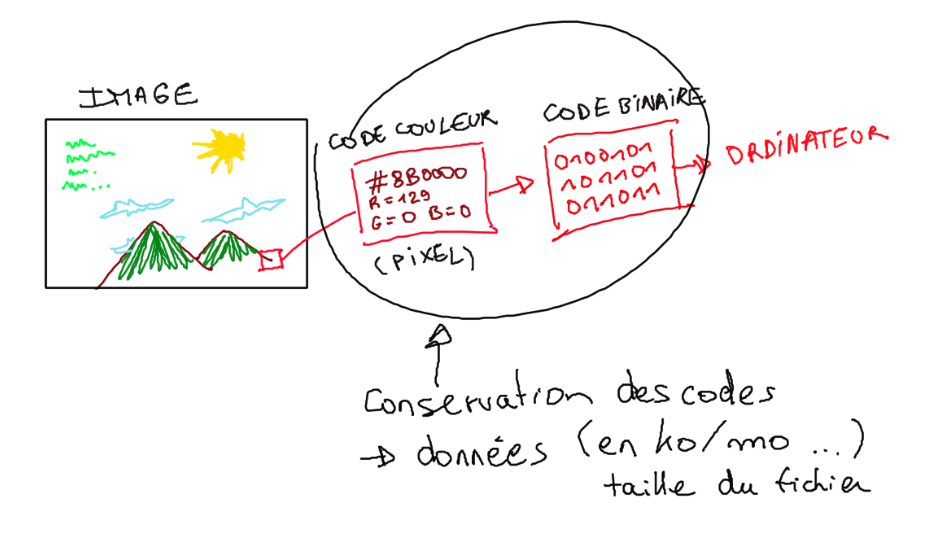 IMAGE
CODE COULEUR
#8B0000
R=129
G=0 B=0
(PiXEL)
CODE BiNAiRE
0100101
101101
011011
ORDiNATEUR
Conservation des codes
→ données (en ko/mo ...)
taille du fichier